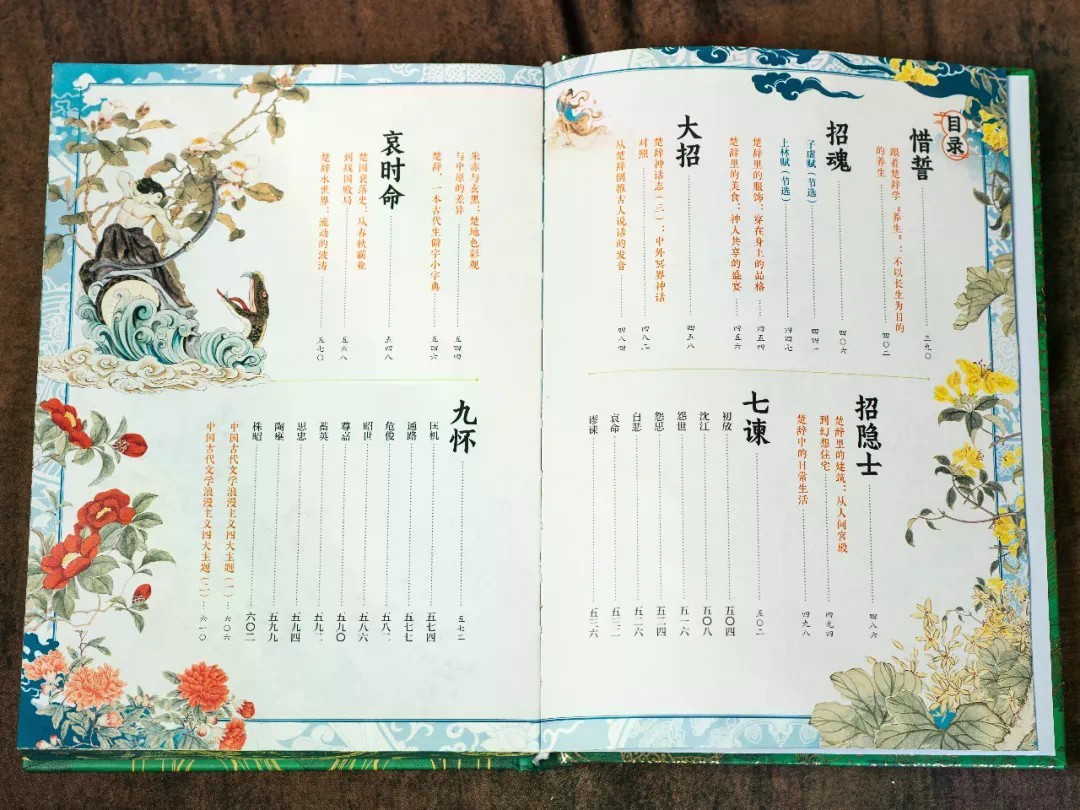 目录
惜誓 三九〇
跟着楚辞学“养生”：不以长生为目的
的养生 四〇二
招魂 四〇六
子虚赋（节选） 四四一
上林赋（节选） 四四七
楚辞里的服饰：穿在身上的品格 四五四
楚辞里的美食：神人共享的盛宴 四五六
大招 四五八
楚辞神话志（三）：中外冥界神话
对照 四八二
从楚辞倒推古人说话的发音 四八四
招隐士 四八六
楚辞里的建筑：从人间宫殿
到幻想住宅 四九四
楚辞中的日常生活 四九八
七谏 五〇二
初放 五〇四
沈江 五〇八
怨世 五一六
怨思 五二四
自悲 五二六
哀命 五三二
谬谏 五三六
朱赤与玄黑：楚地色彩观
与中原的差异 五四四
楚辞，一本古代生僻字小字典 五四六
哀时命 五四八
楚国衰落史：从春秋霸业
到战国败局 五六八
楚辞水世界：流动的波涛 五七〇
九怀 五七二
匡机 五七四
通路 五七七
危俊 五八二
昭世 五八六
尊嘉 五九〇
蓄英 五九二
思忠 五九四
陶壅 五九九
株昭 六〇二
中国古代文学浪漫主义四大主题（一） 六〇六
中国古代文学浪漫主义四大主题（二） 六一〇